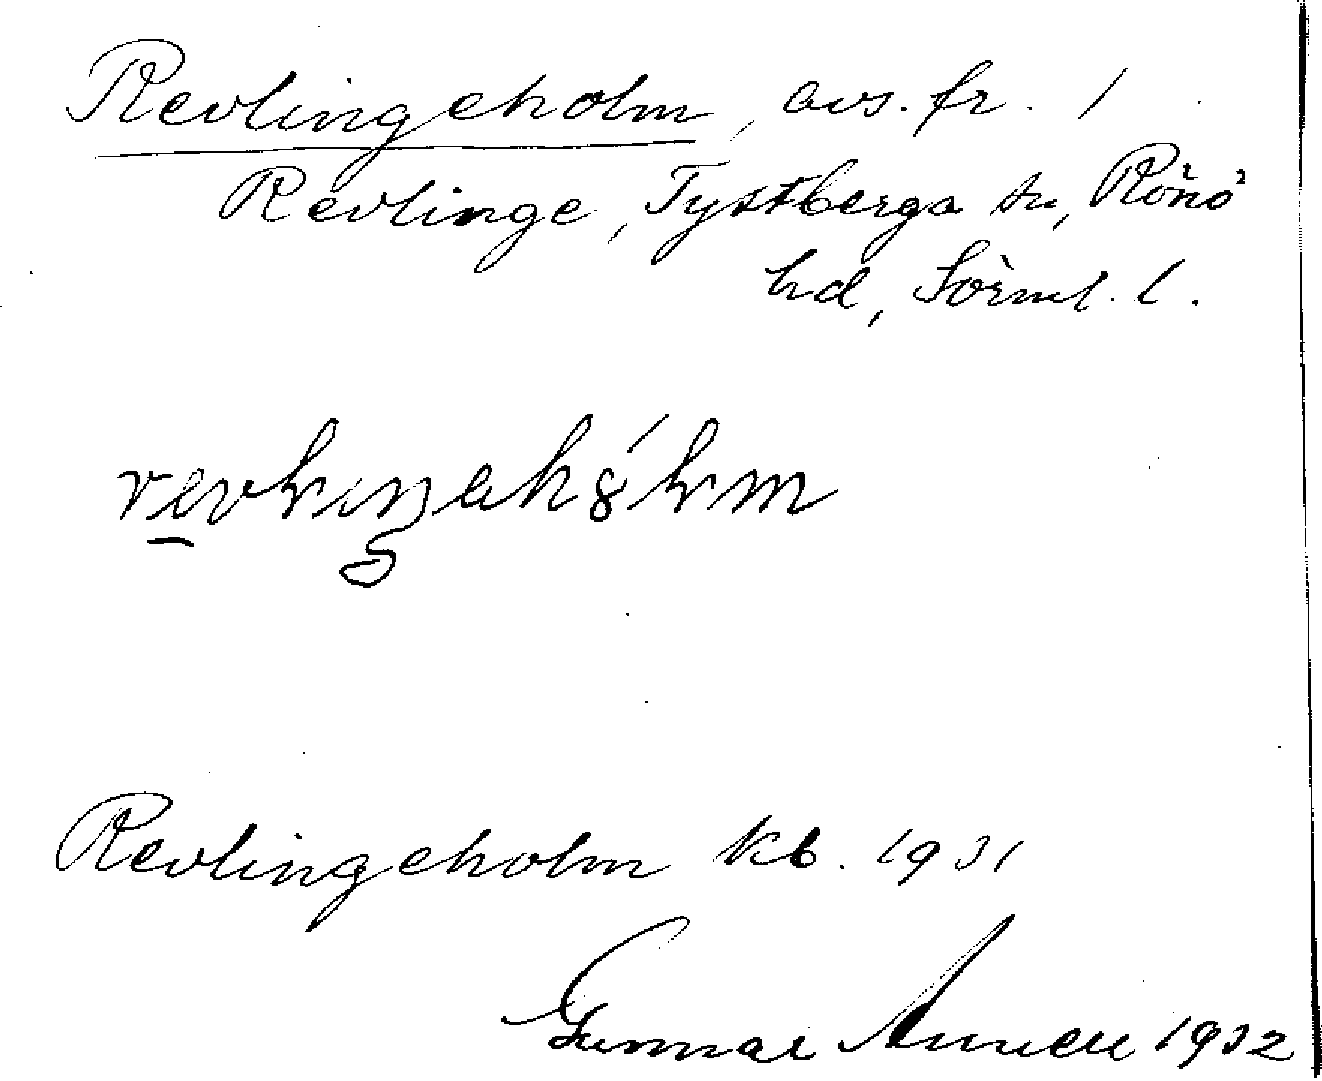 Revlingeholm, avs. fr. 1
Revlinge, Tystberga sn, Rönö
hd, Sörml. l.
Revlingeholm kb. 1931
Gunnar 1932